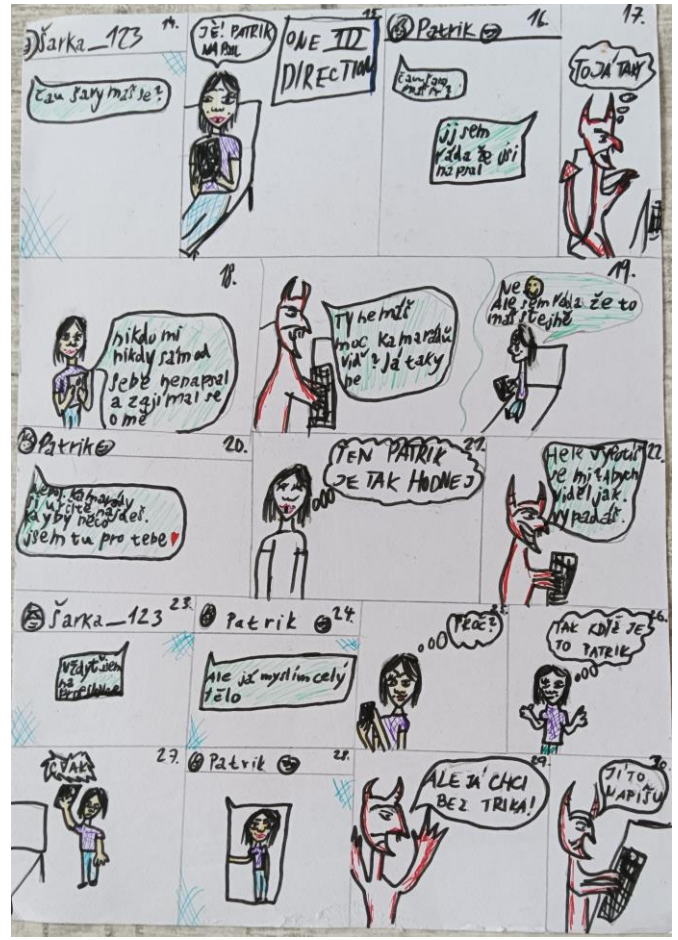 Šarka_123
14.
čau šary máš se?
JÉ! PATRIK
NAPSAL
15.
ONE III
DIRECTION
Patrik
16.
čau šary
máš se?
jj sem
ráda že jsi
napsal
17.
TO JÁ TAKY
18.
nikdo mi
nikdy sám od
sebe nenapsal
a zajímal se
o mě
Ty nemáš
moc kamarádů
viď? Já taky
ne
19.
Ne
Ale sem ráda že to
máš stejně
Patrik
20.
kamarády
si určitě najdeš.
kdyby něco
jsem tu pro tebe
21.
TEN PATRIK
JE TAK HODNEJ
22.
Hele vyfotíš
se mi? abych
viděl jak
vypadáš.
Šarka_123
23.
vždyť jsem
na
Patrik
24.
Ale já myslím celý
tělo
25.
PROČ?
26.
TAK KDYŽ JE
TO PATRIK
27.
CVAK
Patrik
28.
29.
ALE JÁ CHCI
BEZ TRIKA!
30.
JÍ TO
NAPÍŠU